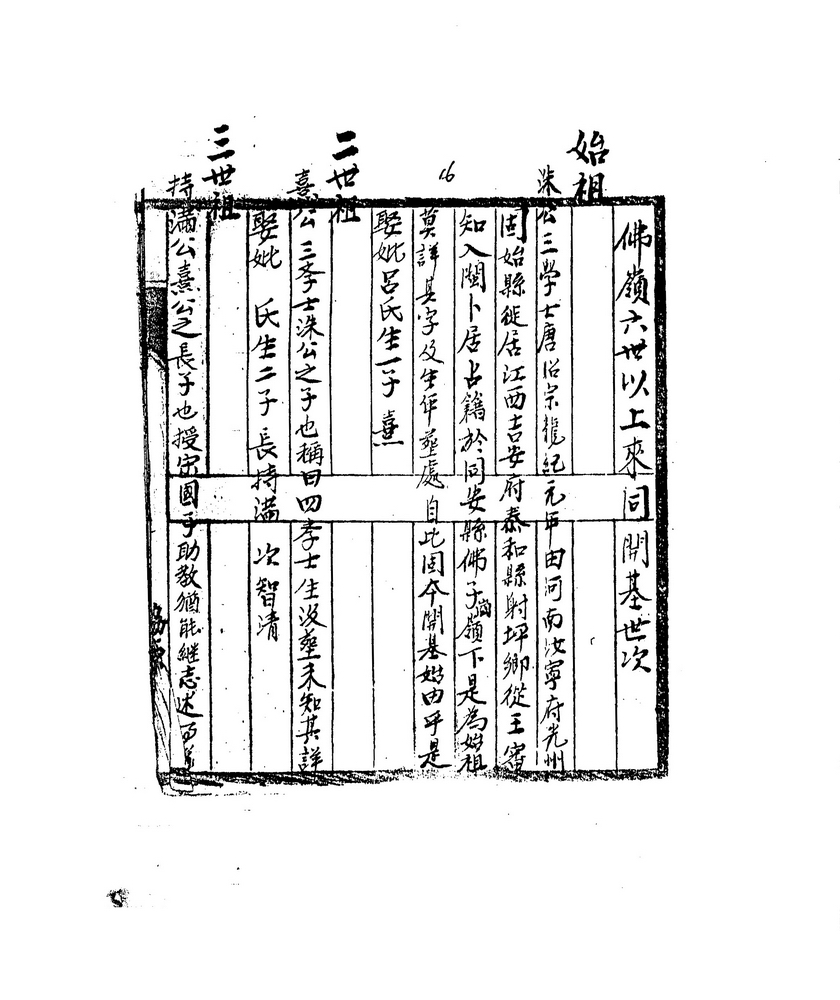 佛嶺六世以上來同開基世次
始祖
洙公三學士唐昭宗龍紀元年由河南汝寧府光州
固始縣徙居江西吉安府泰和縣射坪鄉從王審
知入閩卜居占籍於同安縣佛子嶺下是為始祖
莫詳其字及生卒塟處自此固本開基始由乎是
娶妣呂氏生一子熹
二世祖
熹公三李士洙公之子也稱曰四李士生沒塟未知其詳
娶妣 氏生二子長持滿 次智清
三世祖
持滿公熹公之長子也授宋國子助教猶能繼志述